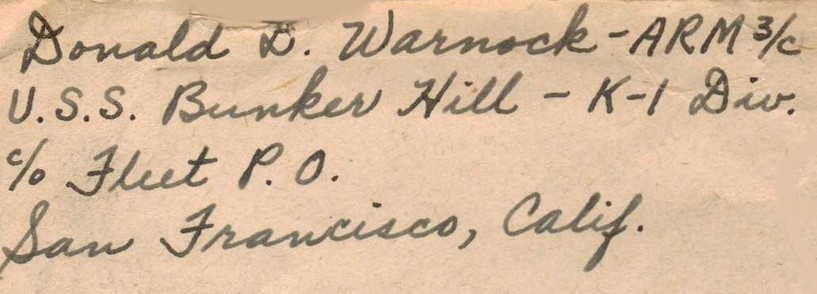 Donald D. Warnock - ARM 3/c
U.S.S. Bunker Hill - K-1 Div.
c/o Fleet P.O.
San Francisco, Calif.